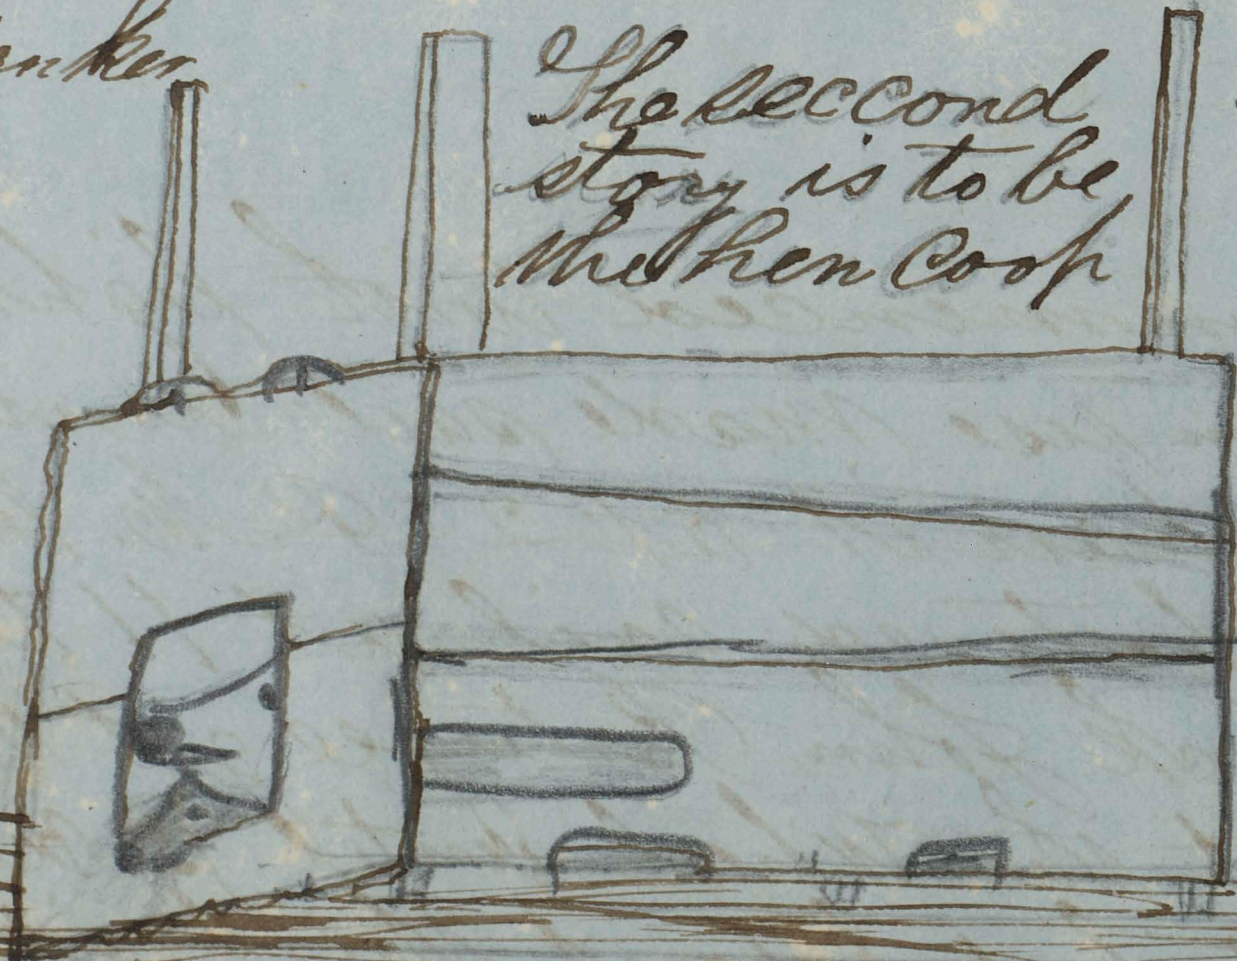 The seccond
story is to be
the hen Coop